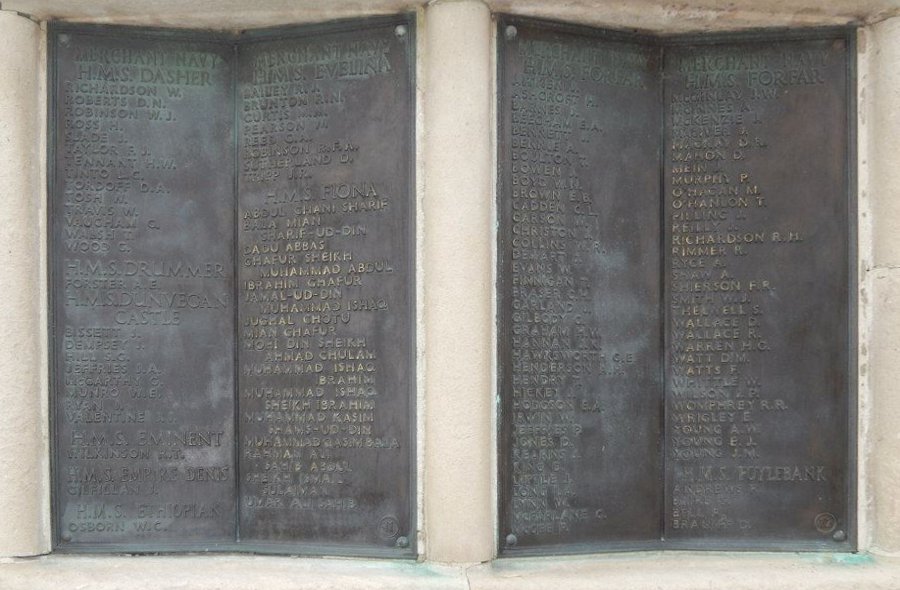 MERCHANT NAVY
H.M.S. DASHER
RICHARDSON W.
ROBERTS D.N.
ROBINSON W.J.
ROSS H.
SLADE J.
TAYLOR F.J.
TENNANT H.W.
TINTO L.G.
TORDOFF D.A.
TOSH W.
TRAVIS W.
VAUGHAM G.
WASSETT J.
WOOD G.
H.M.S. DRUMMER
FORSTER A.E.
H.M.S. DUNVEGAN
CASTLE
BISSETT J.
DEMPSEY J.
HILL S.G.
JEFFRIES J.A.
McCARTHY G.
MUNRO W.E.
RYAN J.
VALENTINE J.
H.M.S. EMINENT
WILKINSON R.T.
H.M.S. EMPIRE DENIS
GILFILLAN J.
H.M.S. ETHIOPIAN
OSBORN W.C.
MERCHANT NAVY
H.M.S. EVELINA
BAILEY R.J.
BRUNTON R.N.
CURTIS
PEARSON
REED G.A.
ROBINSON R.F.A.
SHEEPLAND D.
H.M.S. FIONA
ABDUL GHANI SHARIF
BABA MIAN
SHARIF-UD-DIN
DADU ABBAS
GHAFUR SHEIKH
MUHAMMAD ABDUL
IBRAHIM GHAFUR
JAMAL-UD-DIN
MUHAMMAD ISHAQ
JUGHAL CHOTU
MIAN GHAFUR
MOHI DIN SHEIKH
AHMAD GHULAM
MUHAMMAD ISHAQ
IBRAHIM
MUHAMMAD ISHAQ
SHEIKH IBRAHIM
MUHAMMAD KASIM
SHAMS-UD-DIN
MUHAMMAD QASIM BABA
RAHMAN ALI
SAHIB ABDUL
SHEIKH ISMAIL
SULAIMAN
UMAR ALI SAHIB
MERCHANT NAVY
H.M.S. FORFAR
ASHCROFT H.
BARNES J.
BEDLAM E.A.
BENNETT
BENNIE A.
BOULTON T.
BOWEN J.
BOYD W.H.
BROWN E.B.
CADDEN C.L.
CARSON
CHRISTON
COLLINS W.R.
DEWART
EVANS W.
FINNIGAN T.
GILBODY
GRAHAM H.W.
HANNAN
HAWKSWORTH C.E.
HENDERSON
HENDRY
HICKEY
HODGSON E.A.
IRVIN W.
JEFFRIES
JONES D.
KEARNS J.
KING G.
LITTLE J.
LONG
McFARLANE C.
MERCHANT NAVY
H.M.S. FORFAR
McGINLAY J.W.
McINNES A.
McKENZIE
MACKAY D.F.
MAHON D.
MEIN
MURPHY P.
O'HAGAN M.
O'HANLON T.
PILLING J.
REILLY
RICHARDSON R.H.
RIMMER R.
RYCE A.
SHAW A.
SHIERSON F.R.
SMITH W.J.
THELWELL S.
WALLACE D.
WALLACE R.
WARREN H.G.
WATT D.M.
WATTS F.
WHITTLE
WILSON J.P.
WOMPHREY R.R.
WRIGLEY E.
YOUNG A.W.
YOUNG E.J.
YOUNG J.M.
H.M.S. FOYLEBANK
ANDREWS
BELL P.